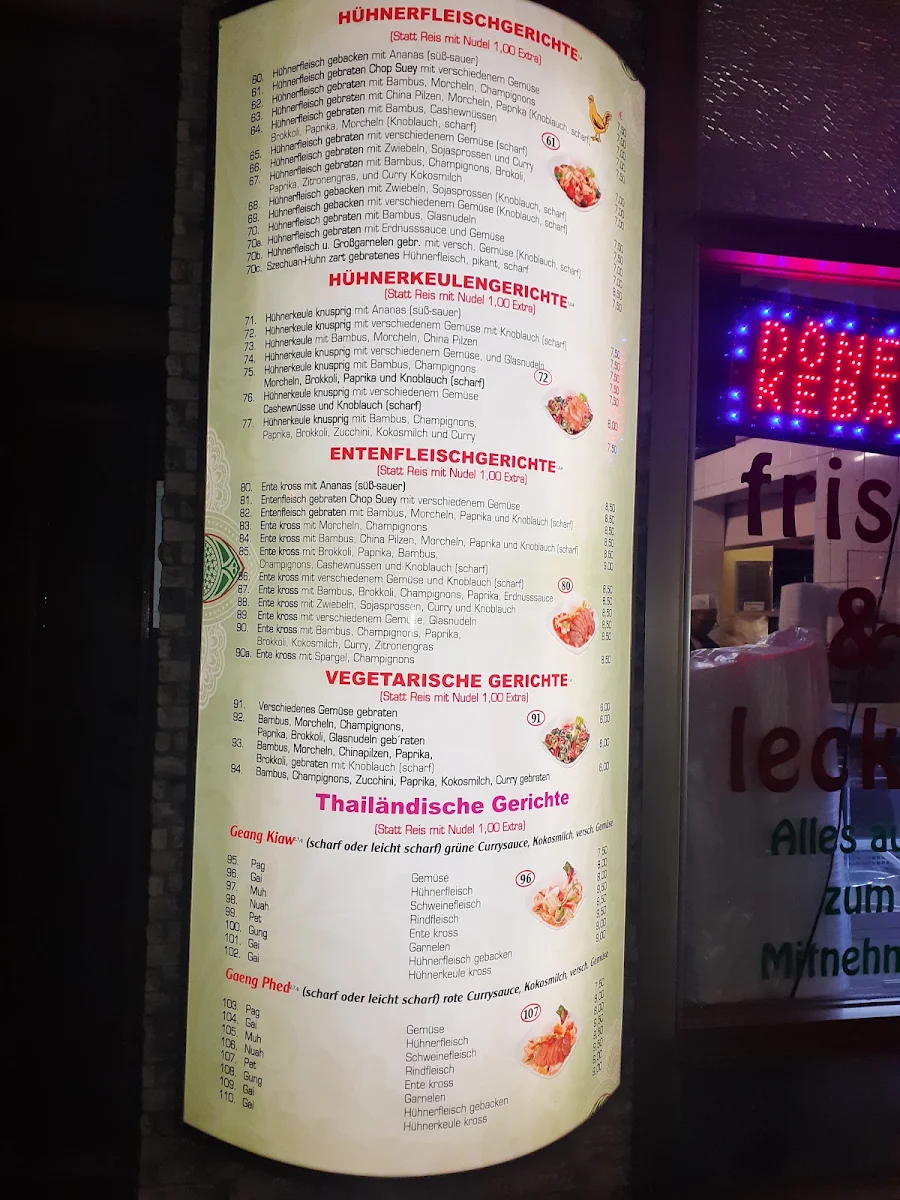 HÜHNERFLEISCHGERICHTE
(Statt Reis mit Nudel 1,00 Extra)
60. Hühnerfleisch gebacken mit Ananas (süß-sauer)
61. Hühnerfleisch gebraten Chop Suey mit verschiedenem Gemüse
62. Hühnerfleisch gebraten mit Bambus, Morcheln, Champignons
63. Hühnerfleisch gebraten mit China Pilzen, Morcheln, Paprika (Knoblauch, scharf)
64. Hühnerfleisch gebraten mit Bambus, Cashewnüssen
Brokkoli, Paprika, Morcheln (Knoblauch, scharf)
65. Hühnerfleisch gebraten mit verschiedenem Gemüse (scharf)
66. Hühnerfleisch gebraten mit Zwiebeln, Sojasprossen und Curry
67. Hühnerfleisch gebraten mit Bambus, Champignons, Brokoli,
Paprika, Zitronengras, und Curry Kokosmilch
68. Hühnerfleisch gebacken mit Zwiebeln, Sojasprossen (Knoblauch, scharf)
69. Hühnerfleisch gebacken mit verschiedenem Gemüse (Knoblauch, scharf)
70. Hühnerfleisch gebraten mit Bambus, Glasnudeln
70a. Hühnerfleisch gebraten mit Erdnusssauce und Gemüse
70b. Hühnerfleisch u. Großgarnelen gebr. mit versch. Gemüse (Knoblauch, scharf)
70c. Szechuan-Huhn zart gebratenes Hühnerfleisch, pikant, scharf
61
HÜHNERKEULENGERICHTE
(Statt Reis mit Nudel 1,00 Extra)
71. Hühnerkeule knusprig mit Ananas (süß-sauer)
72. Hühnerkeule knusprig mit verschiedenem Gemüse mit Knoblauch (scharf)
73. Hühnerkeule mit Bambus, Morcheln, China Pilzen
74. Hühnerkeule knusprig mit verschiedenem Gemüse, und Glasnudeln
75. Hühnerkeule knusprig mit Bambus, Champignons
Morcheln, Brokkoli, Paprika und Knoblauch (scharf)
76. Hühnerkeule knusprig mit verschiedenem Gemüse
Cashewnüsse und Knoblauch (scharf) 8,00
77. Hühnerkeule knusprig mit Bambus, Champignons,
Paprika, Brokkoli, Zucchini, Kokosmilch und Curry 7,50
72
ENTENFLEISCHGERICHTE
(Statt Reis mit Nudel 1,00 Extra)
80. Ente kross mit Ananas (süß-sauer) 8,50
81. Entenfleisch gebraten Chop Suey mit verschiedenem Gemüse 8,50
82. Entenfleisch gebraten mit Bambus, Morcheln, Paprika und Knoblauch (scharf) 8,50
83. Ente kross mit Morcheln, Champignons 8,50
84 Ente kross mit Bambus, China Pilzen, Morcheln, Paprika und Knoblauch (scharf) 8,50
85. Ente kross mit Brokkoli, Paprika, Bambus,
Champignons, Cashewnüssen und Knoblauch (scharf) 9,00
86. Ente kross mit verschiedenem Gemüse und Knoblauch (scharf) 8,50
87. Ente kross mit Bambus, Brokkoli, Champignons, Paprika, Erdnusssauce 8,50
88. Ente kross mit Zwiebeln, Sojasprossen, Curry und Knoblauch 8,50
89. Ente kross mit verschiedenem Gemüse, Glasnudeln 8,50
90. Ente kross mit Bambus, Champignons, Paprika,
Brokkoli, Kokosmilch, Curry, Zitronengras 8,50
90a. Ente kross mit Spargel, Champignons 8,50
80
VEGETARISCHE GERICHTE
(Statt Reis mit Nudel 1,00 Extra)
91. Verschiedenes Gemüse gebraten 6,00
92. Bambus, Morcheln, Champignons, 6,00
Paprika, Brokkoli, Glasnudeln geb´raten
93. Bambus, Morcheln, Chinapilzen, Paprika, 6,00
Brokkoli, gebraten mit Knoblauch (scharf)
94 Bambus, Champignons, Zucchini, Paprika, Kokosmilch, Curry gebraten 6,00
91
Thailändische Gerichte
(Statt Reis mit Nudel 1,00 Extra)
Geang Kiaw (scharf oder leicht scharf) grüne Currysauce, Kokosmilch, versch. Gemüse
95. Pag Gemüse 7,50
96. Gai Hühnerfleisch 8,00
97. Muh Schweinefleisch
98. Nuah Rindfleisch
99. Pet Ente kross
100. Gung Garnelen
101. Gai Hühnerfleisch gebacken
102. Gai Hühnerkeule kross
96
Gaeng Phed (scharf oder leicht scharf) rote Currysauce, Kokosmilch, versch. Gemüse
103. Pag Gemüse 7,50
104. Gai Hühnerfleisch 8,00
105. Muh Schweinefleisch
106. Nuah Rindfleisch
107. Pet Ente kross
108. Gung Garnelen
109. Gai Hühnerfleisch gebacken
110. Gai Hühnerkeule kross
107
DÖNE
KEBA
fris
&
leck
Alles au
zum
Mitnehm